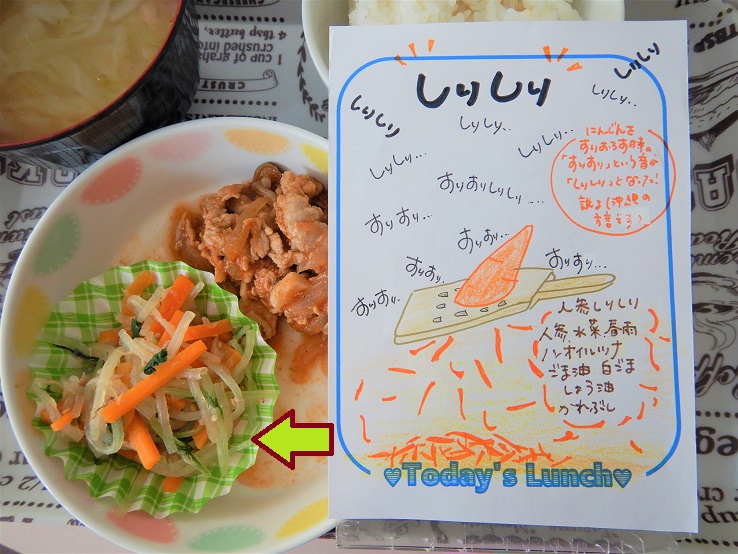 しりしり
しりしり
しりしり
しりしり..
しりしり..
しりしり..
しりしり...
すりおりしりしり....
すりすり...
すりすり...
すりすり...
すりすり..
すりすり..
にんじんを
すりおろす時の
「すりすり」という音が
「しりしり」となった!
説も(沖縄の
方言です)
人参しりしり
人参、水菜、春雨
ノンオイルツナ
ごま油 白ごま
しょう油
かつおぶし
♥Today's Lunch♥
1 cup of graham
crushed into
4 tbsp butter,
CRUST